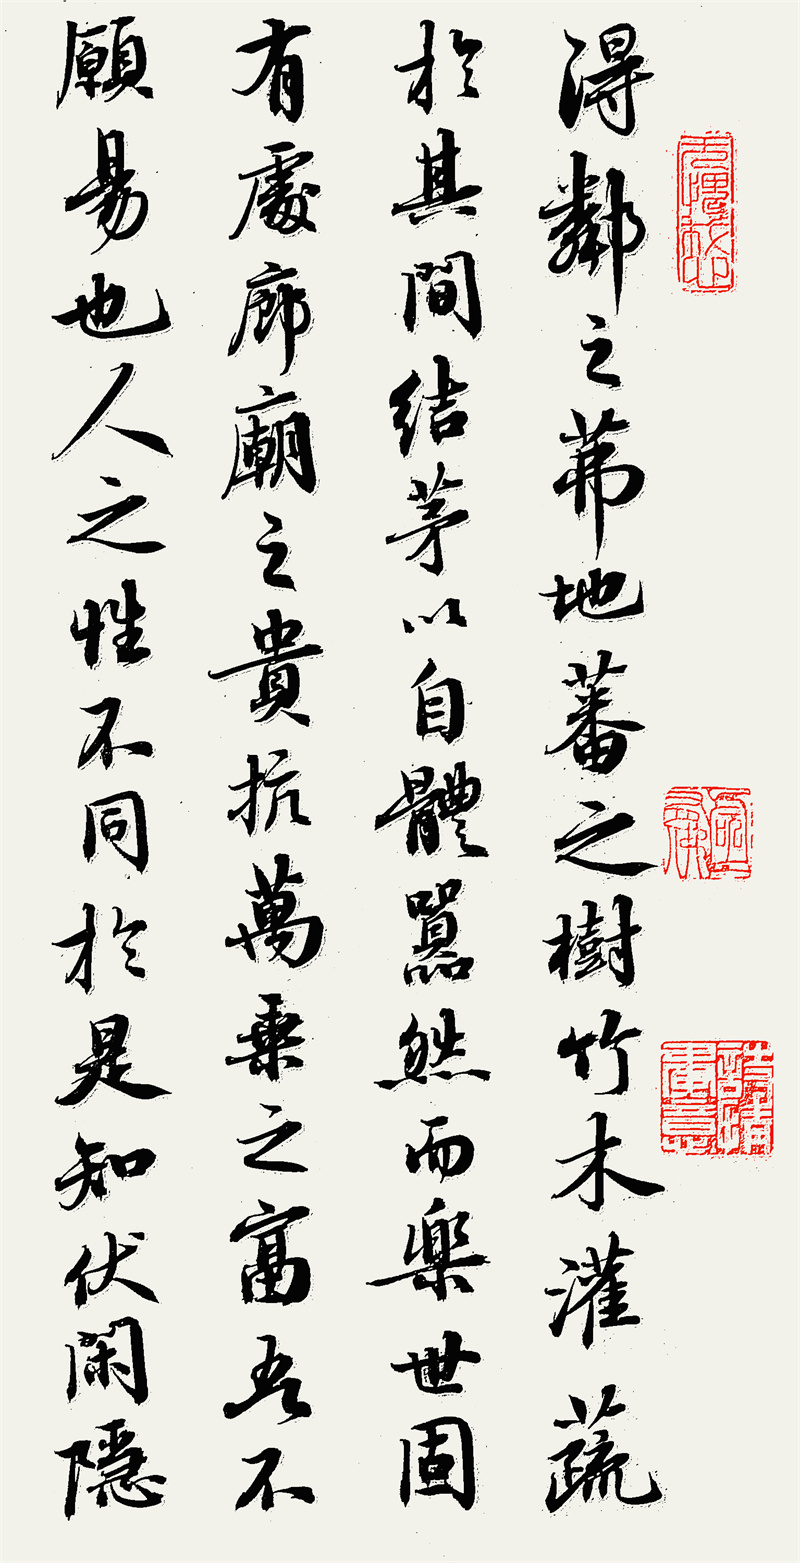 得鄰之茀地蕃之樹竹木灌蔬
於其間結茅以自體囂然而樂世固
有處廊廟之貴抗萬乘之富吾不
願易也人之性不同於是知伏閑隱